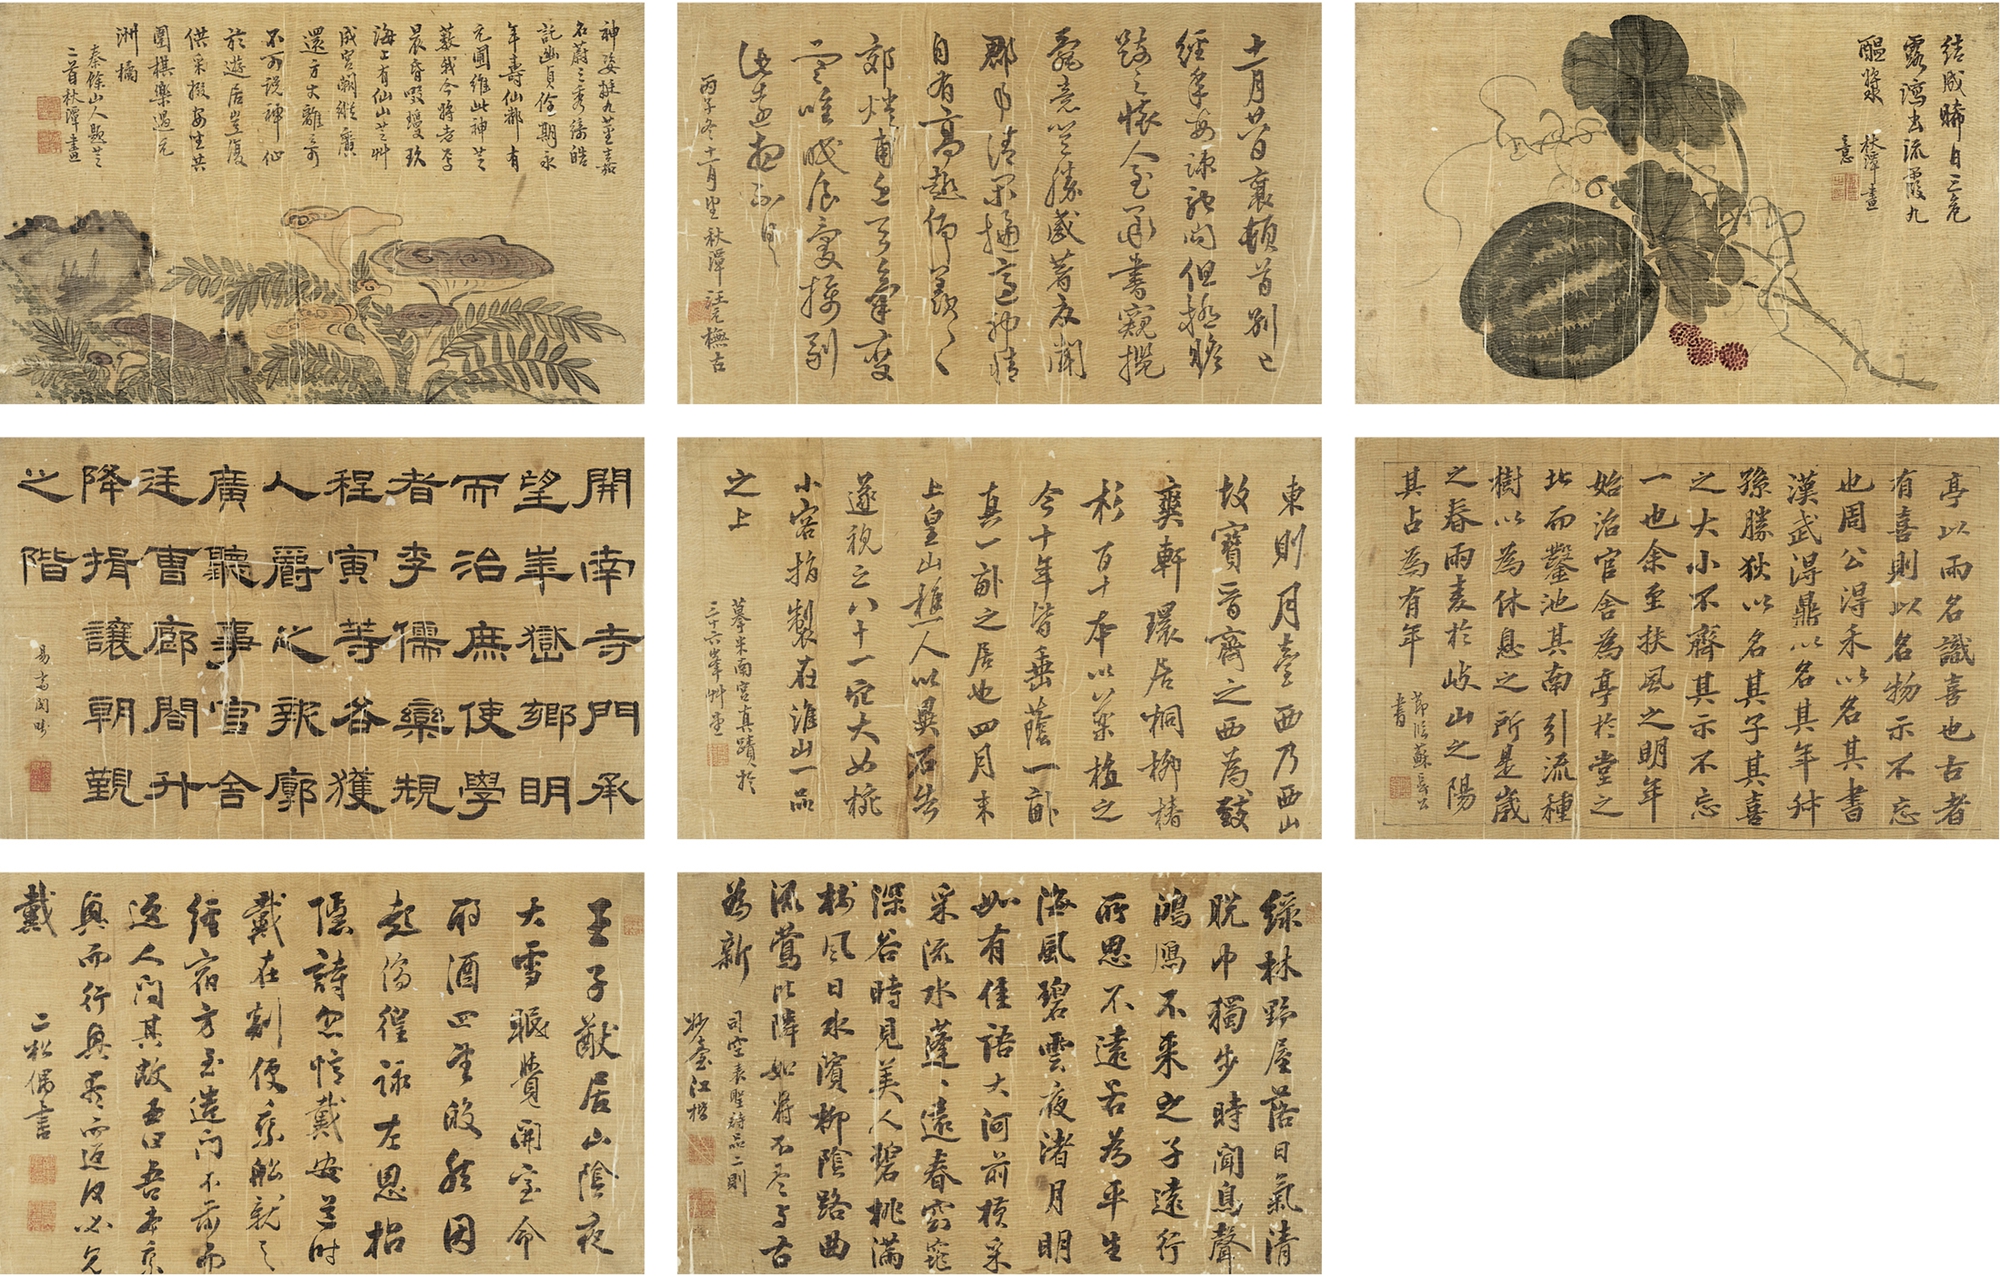 神姿挺九莖嘉
名蔚三秀綠皓
託幽貞侶期永
年壽仙都有
元圃維此神芝
蓺我今將老李
晨昏啜瓊玖
海上有仙山芝艸
成宮闕縱廣
還方丈離奇
不可說神仙
於遊居豈復
供采掇安坐共
圍棋樂過元
洲橘
秦餘山人題芝
二首秋潭畫
襄頓首別已
經年安疎馳問但極瞻
跂之懷人至承書竊攬
郡中清閑
自有高趣仰羨
丙子冬十一月望秋潭汪橅古
結成晞日三危
露瀉出流霞九
醞漿
秋潭畫
意
開南寺門承
望華嶽鄉明
而治庶使學
者李儒欒規
程寅等各獲
人爵之報廓
廣聽事官舍
廷曹廊閣升
降揖讓朝覲
之階
東則月臺西乃西山
故寶晉齋之西為致
爽軒環居桐柳椿
杉百十本以藥植之
今十年皆垂蔭一畝
真一畝之居也四月末
上皇山樵人以異石告
遂視之八十一穴大如椀
小容指製在淮山一品
之上
摹米南宮真蹟於
三十六峯艸堂
亭以雨名識喜也古者
有喜則以名物示不忘
也周公得禾以名其書
漢武得鼎以名其年叔
孫勝狄以名其子其喜
之大小不齊其示不忘
一也余至扶風之明年
始治官舍為亭於堂之
北而鑿池其南引流種
樹以為休息之所是歲
之春雨麥於岐山之陽
其占為有年
節臨蘇長公
書
王子猷居山陰夜
大雪眠覺開室命
酌酒四望皎然因
起彷徨詠左思招
隱詩忽憶戴安道時
戴在剡便乘船就之
經宿方至造門不前而
返人問其故王曰吾本乘
興而行興盡而返何必見
戴
二松偶書
綠林野屋落日氣清
脫巾獨步時聞鳥聲
鴻鴈不來之子遠行
所思不遠若為平生
海風碧雲夜渚月明
如有佳語大河前橫采
采流水蓬蓬遠春窈窕
深谷時見美人碧桃滿
樹風日水濱柳陰路曲
流鶯比隣如將不盡与古
為新
司空表聖詩品二則
妙臺江楷